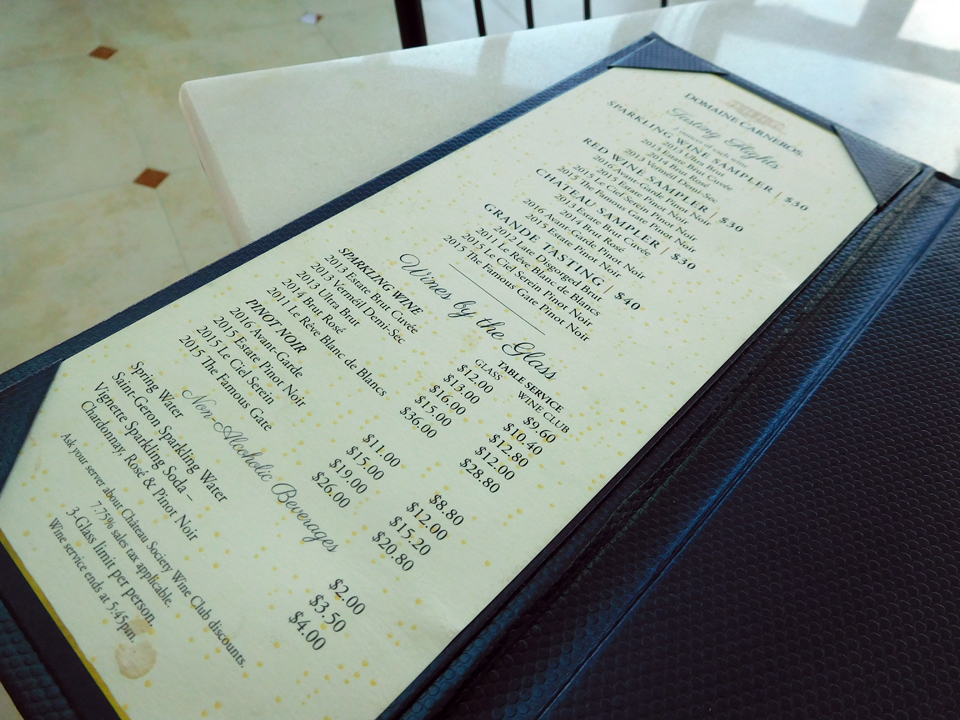 DOMAINE CARNEROS.
Tasting Flights
2 ounces of each wine
SPARKLING WINE SAMPLER | $30
2013 Ultra Brut
2013 Estate Brut Cuvée
2014 Brut Rosé
2013 Verméil Demi-Sec
RED WINE SAMPLER | $30
2016 Avant-Garde Pinot Noir
2015 Estate Pinot Noir
2015 Le Ciel Serein Pinot Noir
2015 The Famous Gate Pinot Noir
CHATEAU SAMPLER | $30
2013 Estate Brut Cuvée
2014 Brut Rosé
2016 Avant-Garde Pinot Noir
2015 Estate Pinot Noir
GRANDE TASTING | $40
2012 Late Disgorged Brut
2011 Le Rêve Blanc de Blancs
2015 Le Ciel Serein Pinot Noir
2015 The Famous Gate Pinot Noir
Wines by the Glass
TABLE SERVICE
SPARKLING WINE GLASS WINE CLUB
2013 Estate Brut Cuvée $12.00 $9.60
2013 Verméil Demi-Sec $13.00 $10.40
2013 Ultra Brut $16.00 $12.80
2014 Brut Rosé $15.00 $12.00
2011 Le Rêve Blanc de Blancs $36.00 $28.80
PINOT NOIR
2016 Avant-Garde $11.00 $8.80
2015 Estate Pinot Noir $15.00 $12.00
2015 Le Ciel Serein $19.00 $15.20
2015 The Famous Gate $26.00 $20.80
Non-Alcoholic Beverages
Spring Water $2.00
Saint-Geron Sparkling Water $3.50
Vignette Sparkling Soda – $4.00
Chardonnay, Rosé & Pinot Noir
Ask your server about Château Society Wine Club discounts.
7.75% sales tax applicable.
3-Glass limit per person.
Wine service ends at 5:45pm.